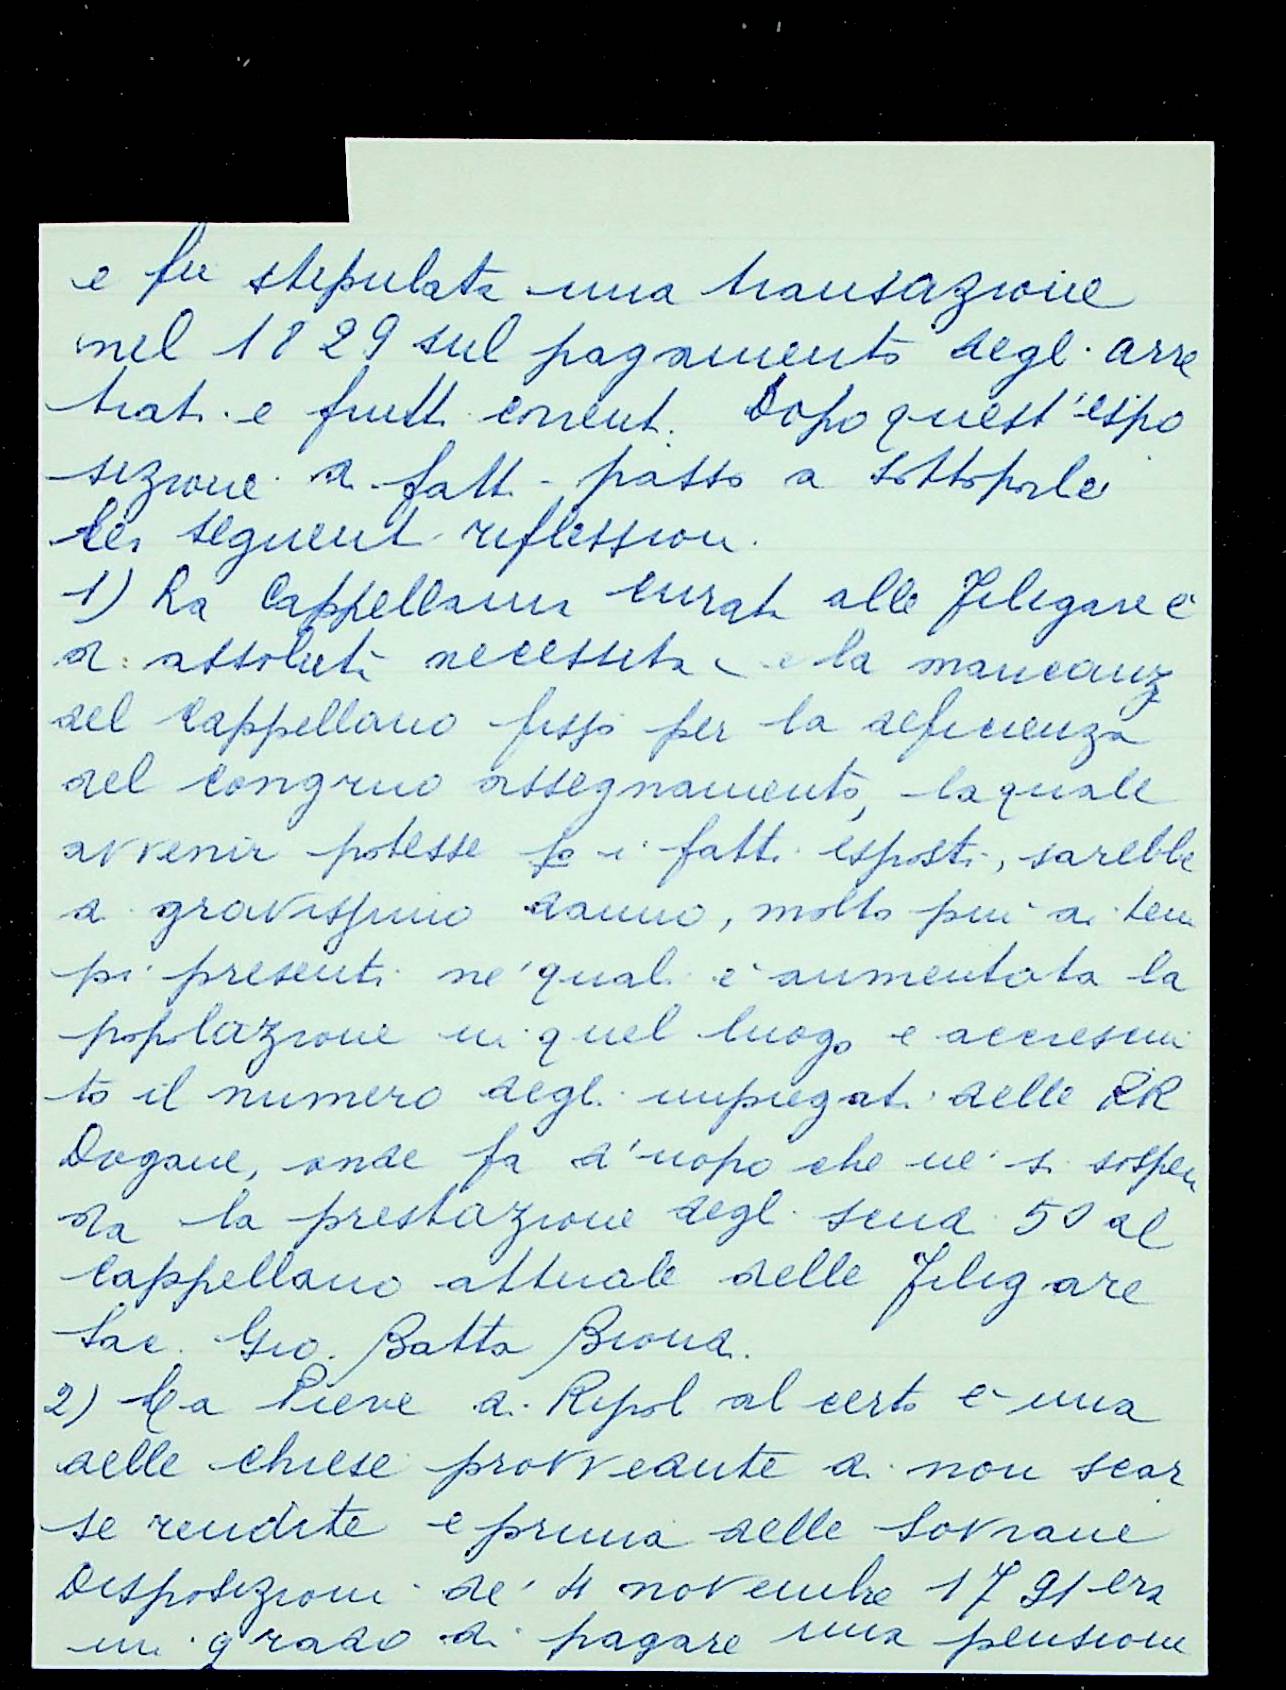 e fu stipulata una transazione
nel 1829 sul pagamento degli arre
trati e frutti correnti. Dopo quest'espo
sizione di fatti passo a sottoporle
le seguenti riflessioni.
1) La Cappellania curata alle Filigare è
di assoluta necessità e la mancanz
del Cappellano fisso per la deficienza
del congruo assegnamento, la quale
avvenir potesse fo i fatti esposti, sarebbe
di gravissimo danno, molto più ai tem
pi presenti ne' quali è aumentata la
popolazione in quel luogo e accresciu
to il numero degli impiegati delle RR
Dogane, onde fa d'uopo che ne si sospen
da la prestazione degli scudi 50 al
Cappellano attuale delle Filigare
Sac. Gio. Batta Biondi.
2) La Pieve di Ripoli al certo è una
delle chiese provvedute di non scar
se rendite e prima delle Sovrane
Disposizioni de' 4 novembre 1791 era
in grado di pagare una pensione